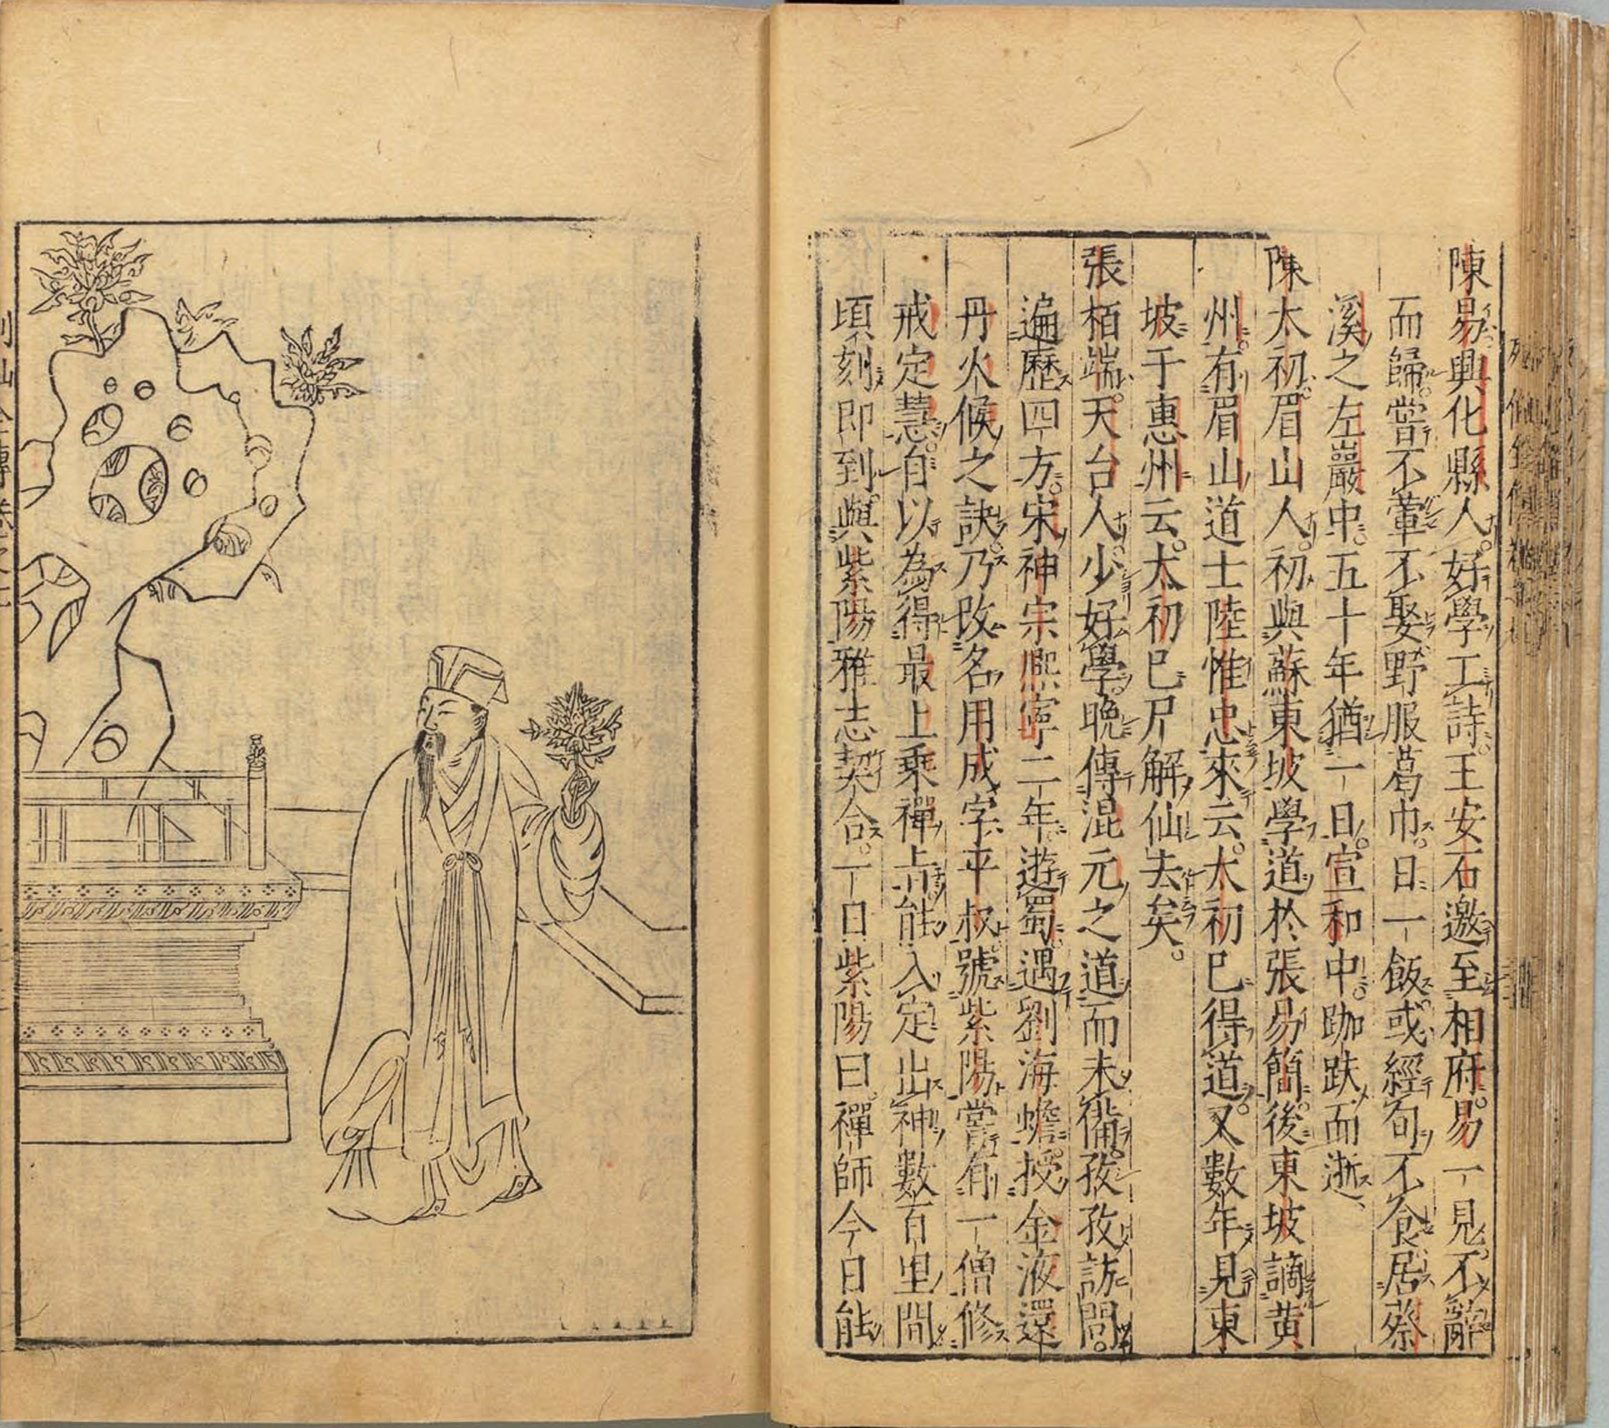 陳易興化縣人。好學工詩。王安石邀至相府。易一見不辭
而歸。嘗不葷不娶野服葛巾。日一飯或經旬不食居蔡
溪之左巖中。五十年猶一日。宣和中。跏趺而逝、
陳太初。眉山人。初與蘇東坡學道於張易簡。後東坡謫黄
州。有眉山道士陸惟忠來云。太初已得道。又數年見東
坡于惠州云。太初已尸解仙去矣。
張栢端。天台人。少好學。晩傳混元之道而未備。孜孜訪問。
遍歷四方。宋神宗熙寧二年遊蜀遇劉海蟾。授金液還
丹火候之訣。乃改名用成字平叔號紫陽嘗有一僧修
戒定慧。自以為得最上乘禪占能入定出神數百里間
頃刻即到。與紫陽雅志契合。一日紫陽曰。禪師今日能
列仙全傳卷之七